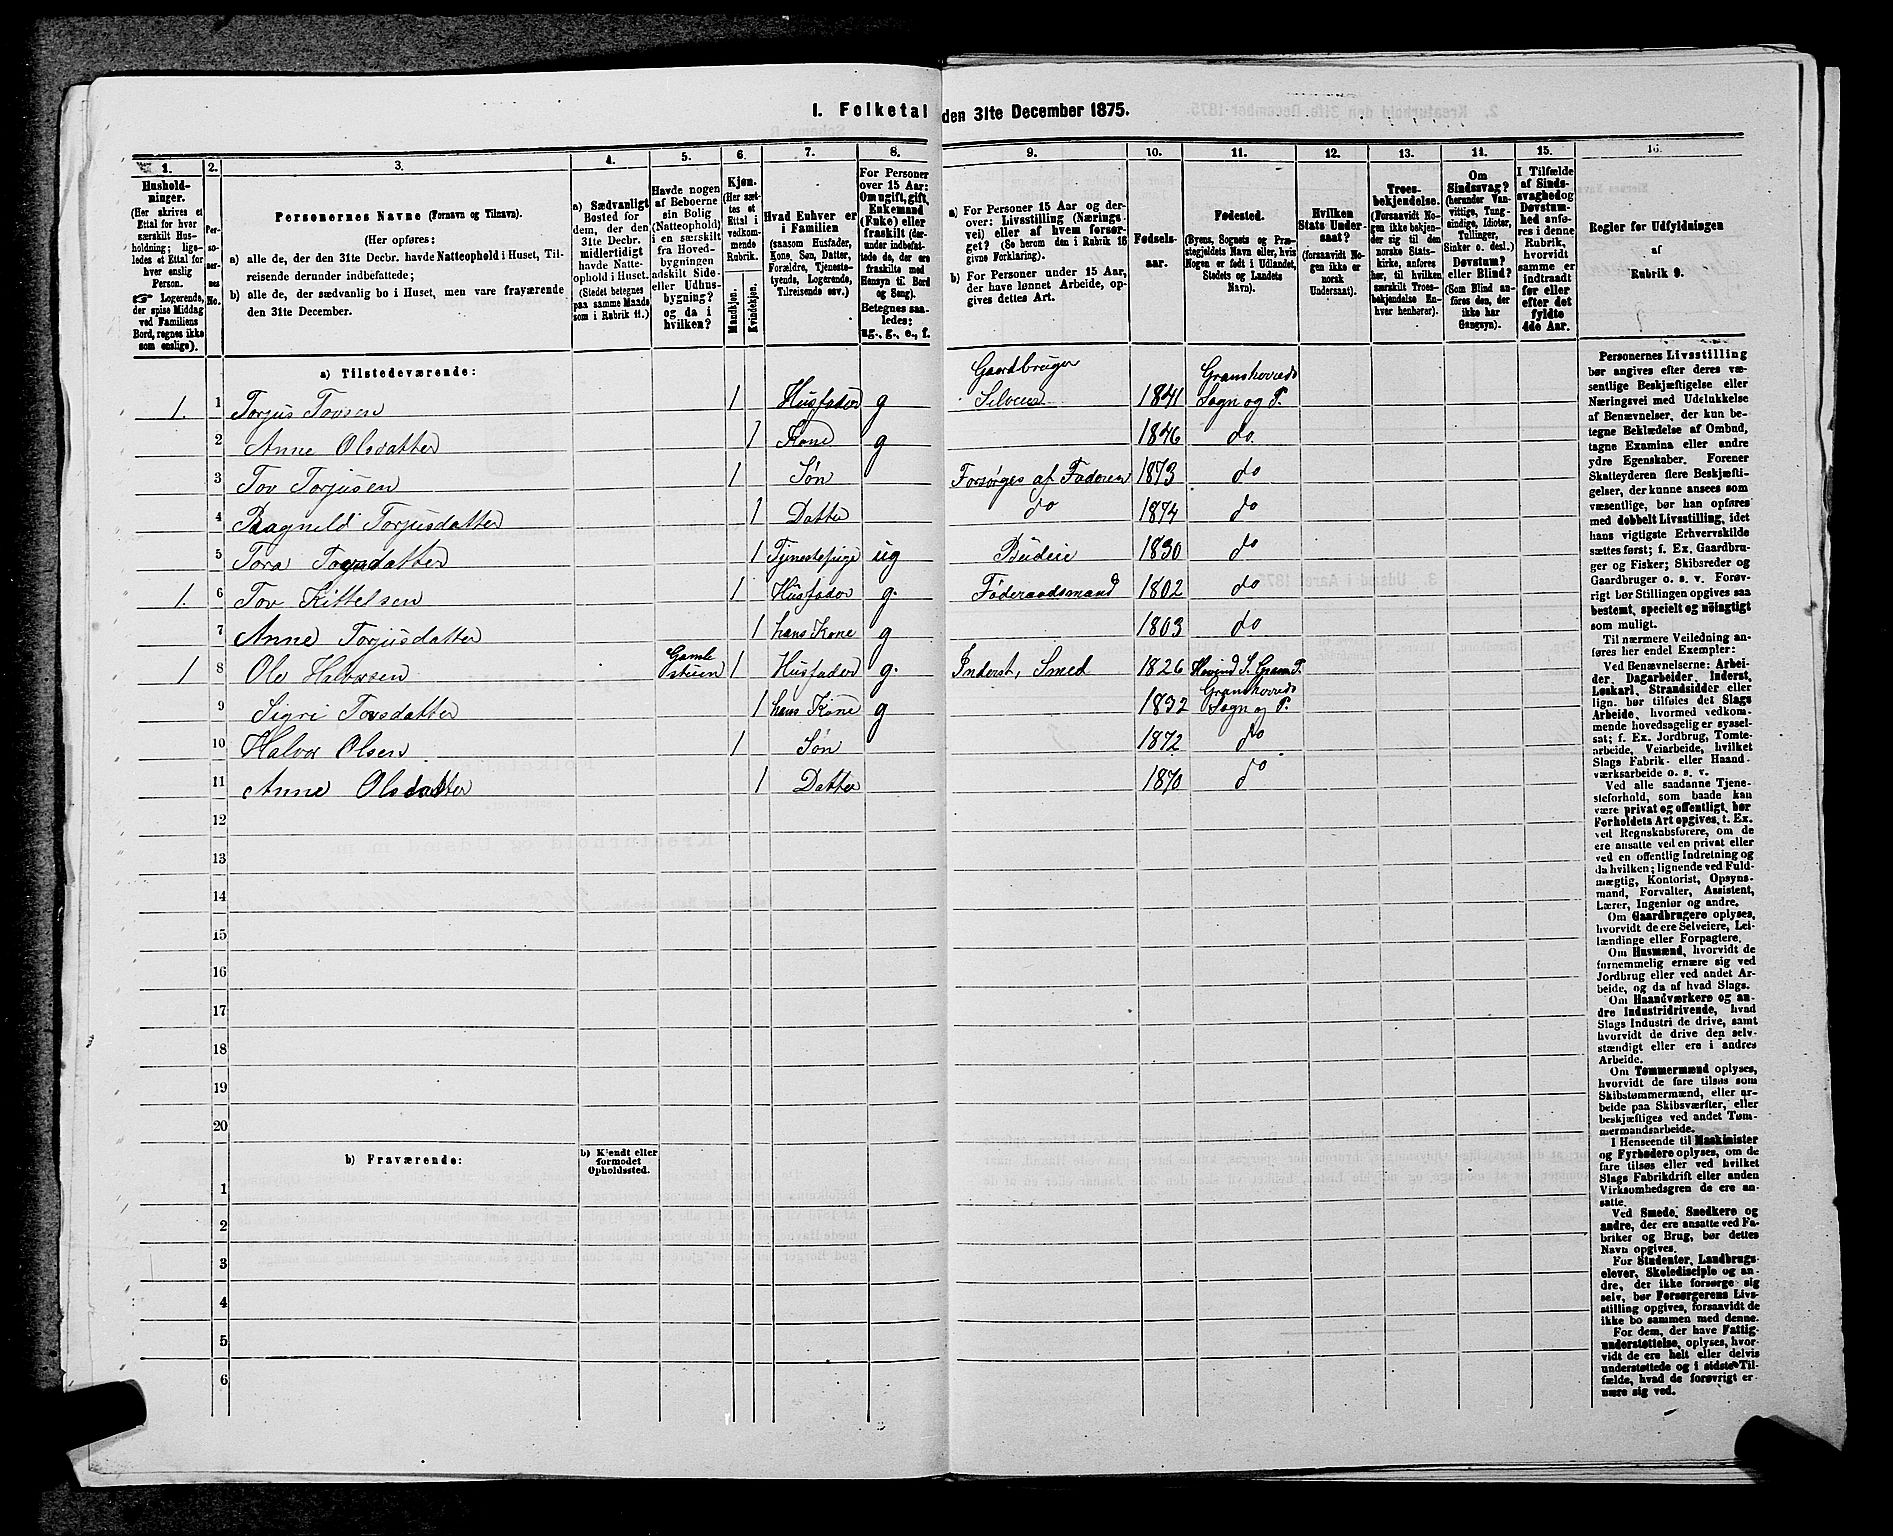 I. Folketal den 31te December 1875.
1. 2. 3. 4. 5. 6. 7. 8. 9. 10. 11. 12. 13. 14. 15. 16.
Hushold-
ninger.
(Her skrives et
Ettal for hver
særskilt Hus-
holdning; lige-
ledes et Ettal for
hver enslig
Person.
☞ Logerende,
der spise Middag
ved Familiens
Bord, regnes ikke
som enslige).
Per-
so-
ner-
nes
No.
Personernes Navne (Fornavn og Tilnavn).
(Her opføres:
a) alle de, der den 31te Decbr. havde Natteophold i Huset, Til-
reisende derunder indbefattede;
b) alle de, der sædvanlig bo i Huset, men vare fraværende
den 31te December.
a) Sædvanligt
Bosted for
dem, der den
31te Decbr.
midlertidigt
havde Natte-
ophold i Huset.
(Stedet betegnes
paa samme Maade
som i Rubrik 11.)
Havde nogen
af Beboerne
sin Bolig
(Natteophold)
i en særskilt
fra Hoved-
bygningen
adskilt Side-
eller Udhus-
bygning?
og da i
hvilken?
Kjøn.
(Her sæt-
tes et
Ettal i
vedkom-
mende
Rubrik.
Mandkjøn.
Kvindekjøn.
Hvad Enhver er
i Familien
(saasom Husfader,
Kone, Søn, Datter,
Forældre, Tjeneste-
tyende, Logerende,
Tilreisende osv.)
For Personer
over 15 Aar:
Om ugift, gift,
Enkemand
(Enke) eller
fraskilt (der-
under indbefat-
tede de, der ere
fraskilte med
Hensyn til Bord
og Seng).
Betegnes saa-
ledes:
ug., g., e., f.
a) For Personer 15 Aar og der-
over: Livsstilling (Nærings-
vei) eller af hvem forsør-
get? (Se herom den i Rubrik 16
givne Forklaring).
b) For Personer under 15 Aar,
der have lønnet Arbeide, op-
gives dettes Art.
Fødsels-
aar.
Fødested.
(Byens, Sognets og Præ-
stegjeldets Navn eller, hvis
Nogen er født i Udlandet,
Stedets og Landets
Navn).
Hvilken
Stats Under-
saat?
(forsaavidt No-
gen ikke er
norsk
Undersaat).
Troes-
bekjendelse.
(Forsaavidt No-
gen ikke bekjen-
der sig til den
norske Stats-
kirke, anføres
her, til hvilken
særskilt Troes-
bekjendelse En-
hver henhører).
Om
Sindssvag?
(herunder Van-
vittige, Tung-
sindige, Idioter,
Tullinger,
Sinker o. desl.)
Døvstum?
eller Blind?
(Som Blind an-
føres den, der
ikke har
Gangsyn).
I Tilfælde
af Sinds-
svaghed og
Døvstum-
hed anfø-
res i denne
Rubrik,
hvorvidt
samme er
indtraadt
før eller
efter det
fyldte
4de Aar.
Regler for Udfyldningen
af
Rubrik 9.
a) Tilstedeværende:
Gaardbruger Granshoveds
1. 1 Torjus Tovsen 1 Husfader g Selveier 1841 Sogn og P.
2 Anne Olsdatter 1 Kone g 1846 do.
3 Tov Torjusen 1 Søn Forsørges af Faderen 1873 do
4 Ragnild Torjusdatter 1 Datter do 1874 do
5 Tora Tovsdatter 1 Tjenestepige ug Budeie 1830 do
1. 6 Tov Kittelsen 1 Husfader g. Føderaadsmand 1802 do
7 Anne Torjusdatter 1 hans Kone g 1803 do
1 8 Ole Halvorsen Gamle stuen 1 Husfader g. Inderst, Smed 1826 Hovind S. Gran P.
9 Sigri Tovsdatter 1 hans Kone g 1832 Granshoveds Sogn og P.
10 Halvor Olsen 1 Søn 1872 do
11 Anne Olsdatter 1 Datter 1870 do
12
13
14
15
16
17
18
19
20
b) Fraværende:
b) Kjendt eller
formodet
Opholdssted.
1
2
3
4
5
6
Personernes Livsstilling
bør angives efter deres væ-
sentlige Beskjæftigelse eller
Næringsvei med Udelukkelse
af Benævnelser, der kun be-
tegne Beklædelse af Ombud,
tagne Examina eller andre
ydre Egenskaber. Forener
Skatteyderen flere Beskjæfti-
gelser, der kunne ansees som
væsentlige, bør han opføres
med dobbelt Livsstilling, idet
hans vigtigste Erhvervskilde
sættes først; f. Ex. Gaardbru-
ger og Fisker; Skibsreder og
Gaardbruger o. s. v. Forøv-
rigt bør Stillingen opgives saa
bestemt, specielt og nøiagtigt
som muligt.
Til nærmere Veiledning an-
føres her endel Exempler:
Ved Benævnelserne: Arbei-
der, Dagarbeider, Inderst,
Løskarl, Strandsidder eller
lign. bør tilføies det Slags
Arbeide, hvormed vedkom-
mende hovedsagelig er syssel-
sat; f. Ex. Jordbrug, Tomte-
arbeide, Veiarbeide, hvilket
Slags Fabrik- eller Haand-
værksarbeide o. s. v.
Ved alle saadanne Tjene-
steforhold, som baade kan
være privat og offentligt, bør
Forholdets Art opgives, t. Ex.
ved Regnskabsførere, om de
ere ansatte ved en privat eller
ved en offentlig Indretning og
da hvilken; lignende ved Fuld-
mægtig, Kontorist, Opsyns-
mand, Forvalter, Assistent,
Lærer, Ingeniør og andre.
Om Gaardbrugere oplyses,
hvorvidt de ere Selveiere, Lei-
lændinge eller Forpagtere.
Om Husmænd, hvorvidt de
fornemmelig ernære sig ved
Jordbrug eller ved andet Ar-
beide, og da af hvad Slags.
Om Haandværkere og an-
dre Industridrivende, hvad
Slags Industri de drive, samt
hvorvidt de drive den selv-
stændigt eller ere i andres
Arbeide.
Om Tømmermænd oplyses,
hvorvidt de fare tilsøs som
Skibstømmermænd, eller ar-
beide paa Skibsværfter, eller
beskjæftiges ved andet Tøm-
mermandsarbeide.
I Henseende til Maskinister
og Fyrbødere oplyses, om de
fare tilsøs eller ved hvilket
Slags Fabrikdrift eller anden
Virksomhedsgren de ere an-
satte.
Ved Smede, Snedkere og
andre, der ere ansatte ved Fa-
briker og Brug, bør dettes
Navn opgives.
For Studenter, Landbrugs-
elever, Skoledisciple og an-
dre, der ikke forsørge sig
selv, bør Forsørgerens Livs-
stilling opgives, forsaavidt de
ikke bo sammen med denne.
For dem, der have Fattig-
understøttelse, oplyses, hvor-
vidt de ere helt eller delvis
understøttede og i sidste Til-
fælde, hvad de forøvrigt er-
nære sig ved.